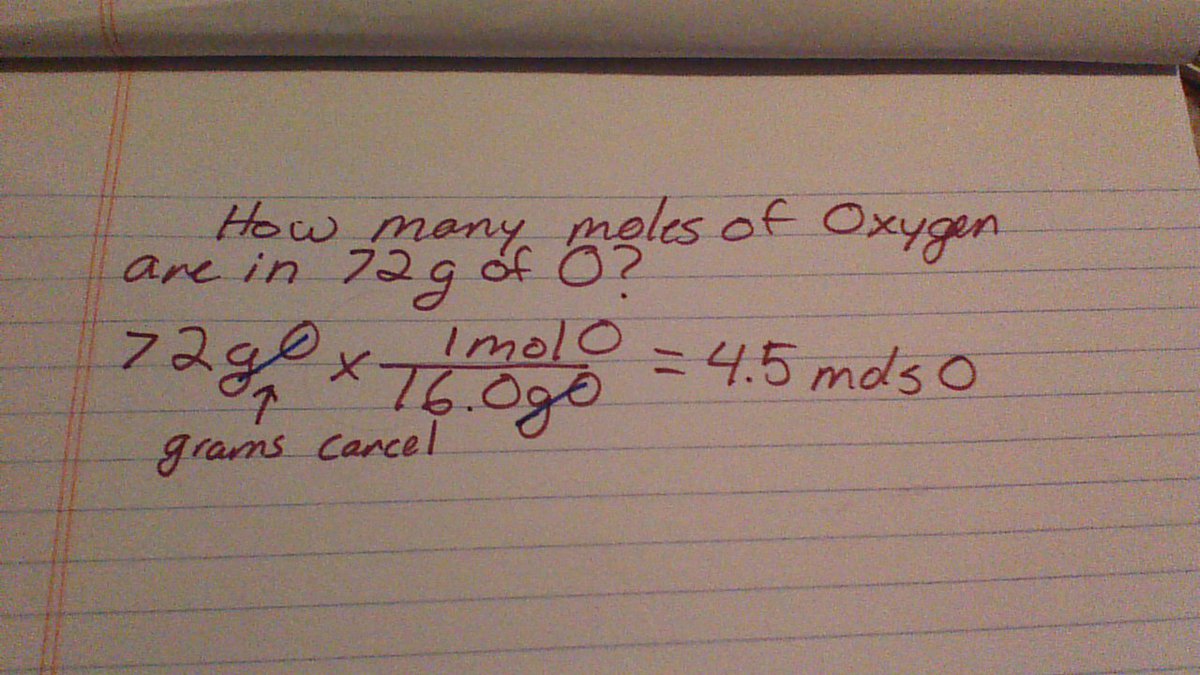 How many moles of Oxygen
are in 72g of O?
72gO x 1molO / 16.0gO = 4.5 mols O
↑
grams cancel